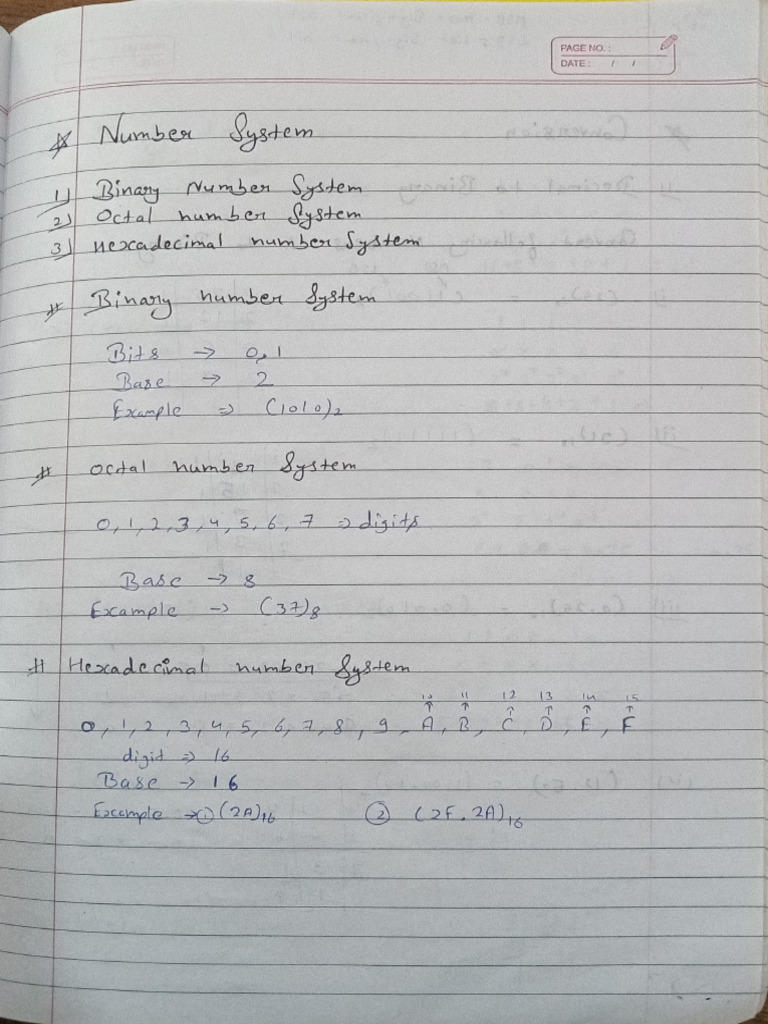 PAGE NO. :
DATE : / /
Number System
1) Binary Number System
2) Octal number System
3) Hexadecimal number System
# Binary number System
Bits → 0, 1
Base → 2
Example ⇒ (1010)₂
# Octal number System
0, 1, 2, 3, 4, 5, 6, 7 ⇒ digits
Base → 8
Example → (37)₈
# Hexadecimal number System
10 11 12 13 14 15
↑ ↑ ↑ ↑ ↑ ↑
0, 1, 2, 3, 4, 5, 6, 7, 8, 9, A, B, C, D, E, F
digit ⇒ 16
Base → 16
Example → ① (2A)₁₆ ② (2F.2A)₁₆